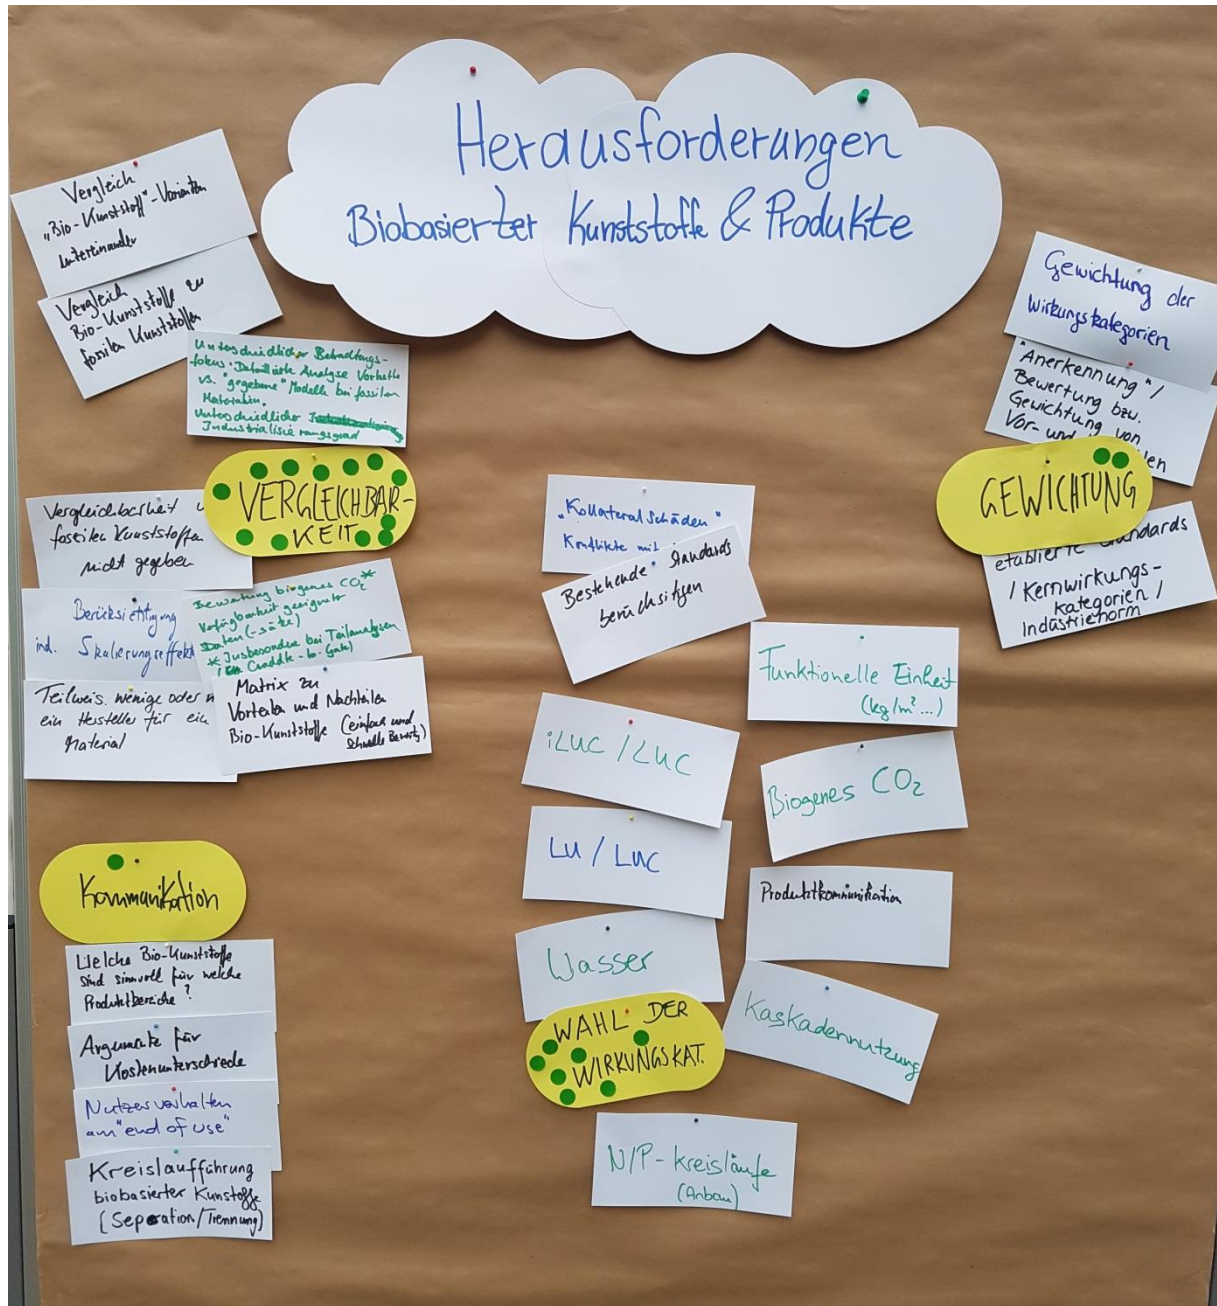 Herausforderungen
Biobasierter Kunststoffe & Produkte
Vergleich
„Bio-Kunststoff"-Varianten
untereinander
Vergleich
Bio-Kunststoffe zu
fossilen Kunststoffen
Unterschiedlicher Betrachtungs-
fokus "Detaillierte Analyse
vs. "gegebene" Modelle bei fossilen
Materialien.
Unterschiedlicher
Industrialisierungsgrad
VERGLEICHBAR-
KEIT
Vergleichbarkeit
fossilen Kunststoffen
nicht gegeben
Berücksichtigung
ind. Skalierungseffekt
Teilweis. wenige oder
ein Hersteller für ein
Material
Bewertung biogenes CO2*
Verfügbarkeit geeigneter
Daten (-sätze)
* Insbesondere bei Teilanalysen
Craddle-to-Gate)
Matrix zu
Vorteilen und Nachteilen
Bio-Kunststoffe (einfach und
schnelle
Kommunikation
Welche Bio-Kunststoffe
sind sinnvoll für welche
Produktbereiche?
Argumente für
Kostenunterschiede
Nutzerverhalten
am "end of use"
Kreislaufführung
biobasierter Kunstoffe
(Separation/Trennung)
„Kollateralschäden"
Konflikte mit
Bestehende Standards
berücksitigen
iLUC / LUC
LU / LUC
Wasser
WAHL DER
WIRKUNGSKAT.
N/P-kreisläufe
(Anbau)
Funktionelle Einheit
(kg/m²...)
Biogenes CO2
Produktkommunikation
Kaskadennutzung
Gewichtung der
Wirkungskategorien
"Anerkennung"/
Bewertung bzw.
Gewichtung von
Vor- und
GEWICHTUNG
etablierte Standards
/ Kernwirkungs-
kategorien /
Industrienorm